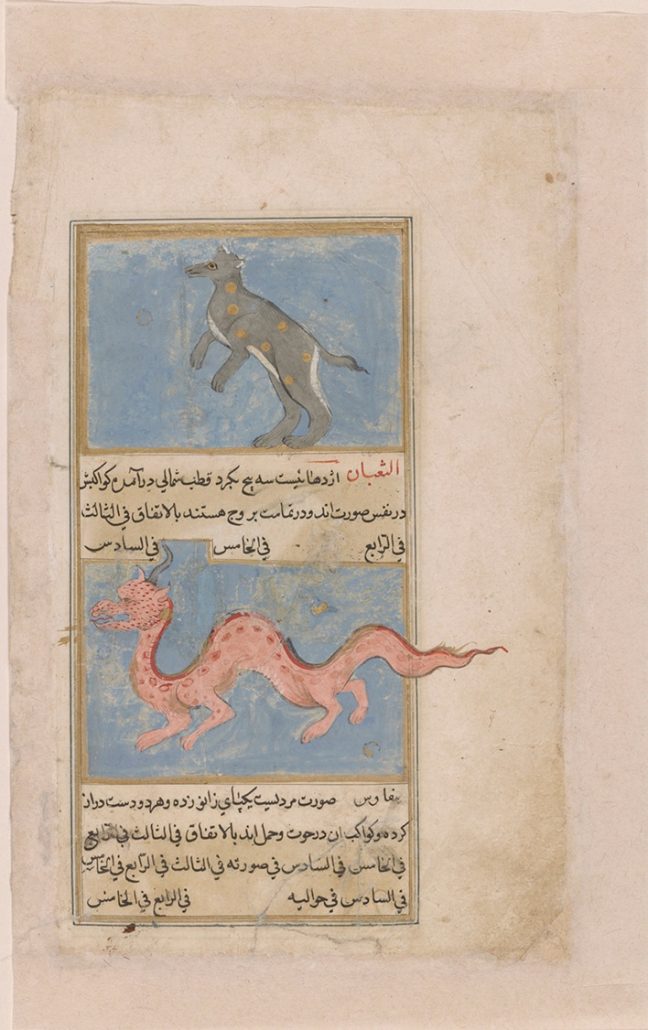 الثعبان اژدهائیست سه پیچ بکرد قطب شمالی درآمده کواکبش
در نفس صورت اند و در تمامت بروج هستند بالاتفاق فی الثالث
فی الرابع فی الخامس فی السادس
صورت مردیست یکپای زانو زده و هر دو دست دراز
کرده و کواکب ان در حوت و حمل اند بالاتفاق فی الثالث فی الرابع
فی الخامس فی السادس فی صورته فی الثالث فی الرابع فی الخامس
فی السادس فی حوالیه فی الرابع فی الخامس